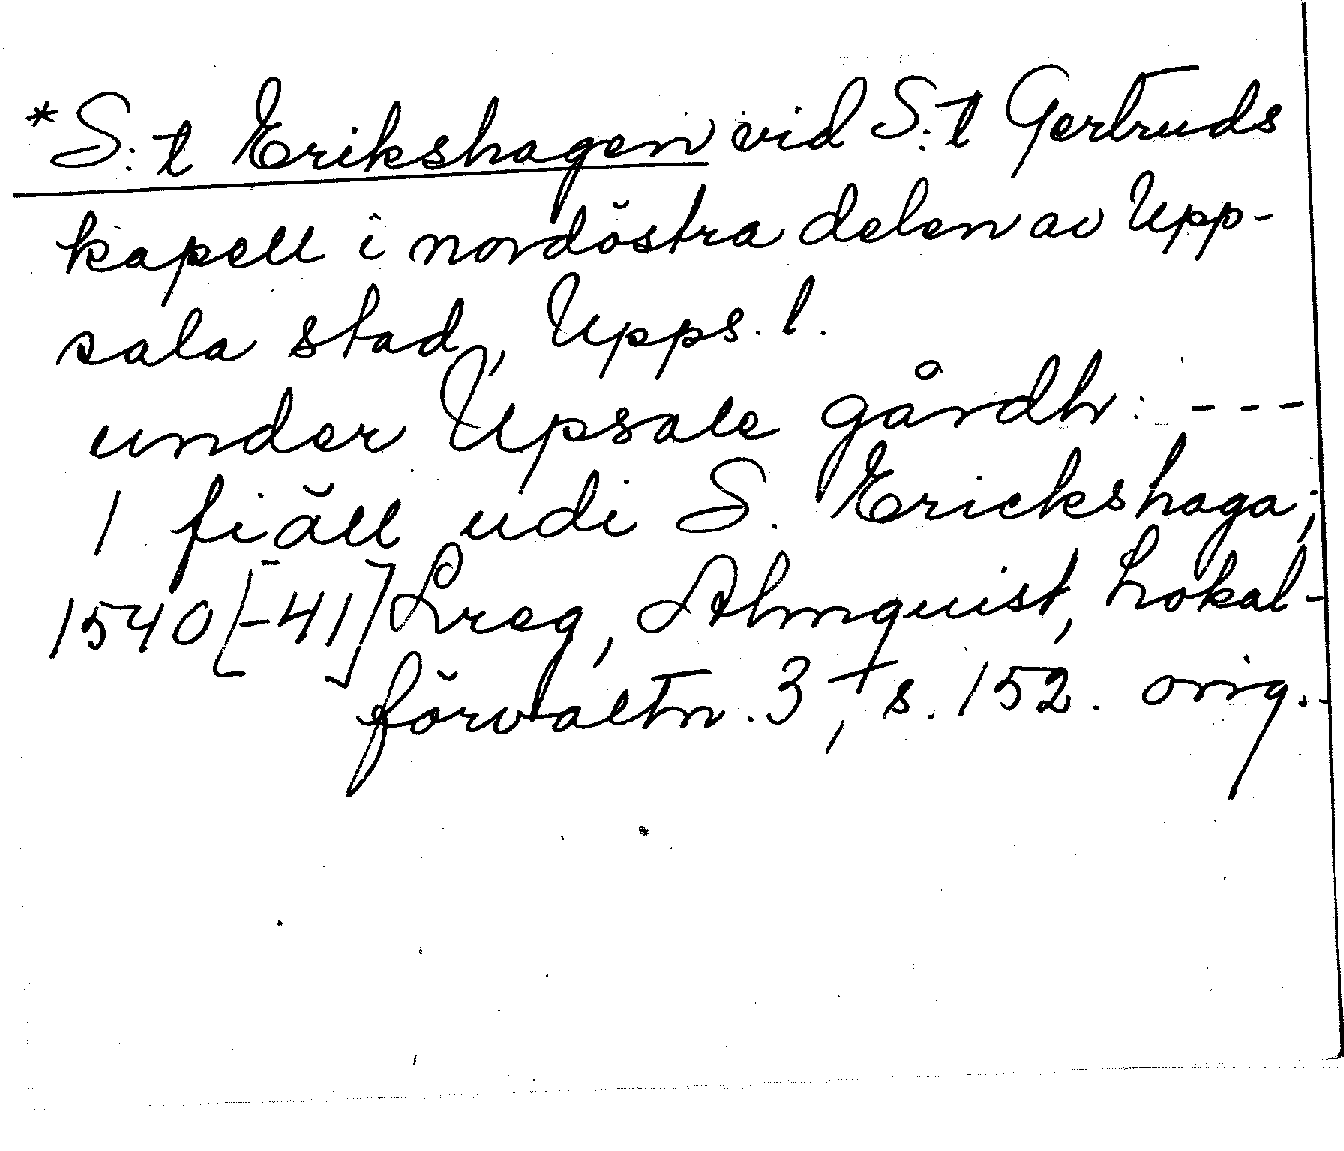 *S:t Erikshagen vid S:t Gertruds
kapell i nordöstra delen av Upp-
sala stad, Upps. l.
under Upsale gårdh: ---
1 fiäll udi S. Erickshaga;
1540[-41] Lreg, Almquist, Lokal-
förvaltn. 3, s. 152. orig.